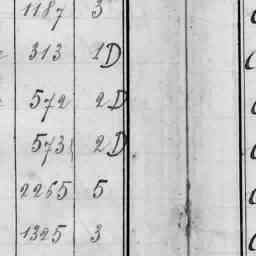 1187 3
313 1D
572 2D
573 2D
2265 5
1325 3